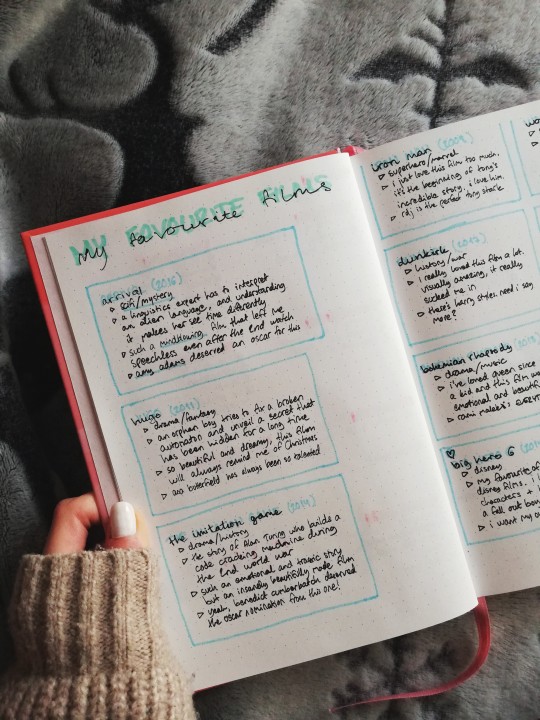 MY FAVOURITE FILMS
my favourite films
arrival (2016)
▷ scifi/mystery
▷ a linguistics expert has to interpret
an alien language, and understanding
it makes her see time differently
▷ such a mindblowing film that left me
speechless even after the end watch
▷ amy adams deserved an oscar for this
hugo (2011)
▷ drama/fantasy
▷ an orphan boy tries to fix a broken
automaton and unveil a secret that
has been hidden for a long time
▷ so beautiful and dreamy, this film
will always remind me of Christmas
▷ asa butterfield has always been so talented
the imitation game (2014)
▷ drama/history
▷ the story of Alan Turing who builds a
code cracking machine during
the 2nd world war
▷ such an emotional and tragic story
but an insanely beautifully made film
▷ yeah, benedict cumberbatch deserved
the oscar nomination from this one!
iron man (2008)
▷ superhero/marvel
▷ i just love this film too much,
it's the beginning of tony's
incredible story, i love him.
▷ rdj is the perfect tony stark
dunkirk (2017)
▷ history/war
▷ i really loved this film a lot.
visually amazing, it really
sucked me in
▷ there's harry styles. need i say
more?
bohemian rhapsody (2018)
▷ drama/music
▷ i've loved queen since
a kid and this film wa
emotional and beautif
▷ rami malek is EVERYT
♡
big hero 6 (201
▷ disney
▷ my favourite of
disney films. i l
characters +
a fall out boy
▷ i want my ow